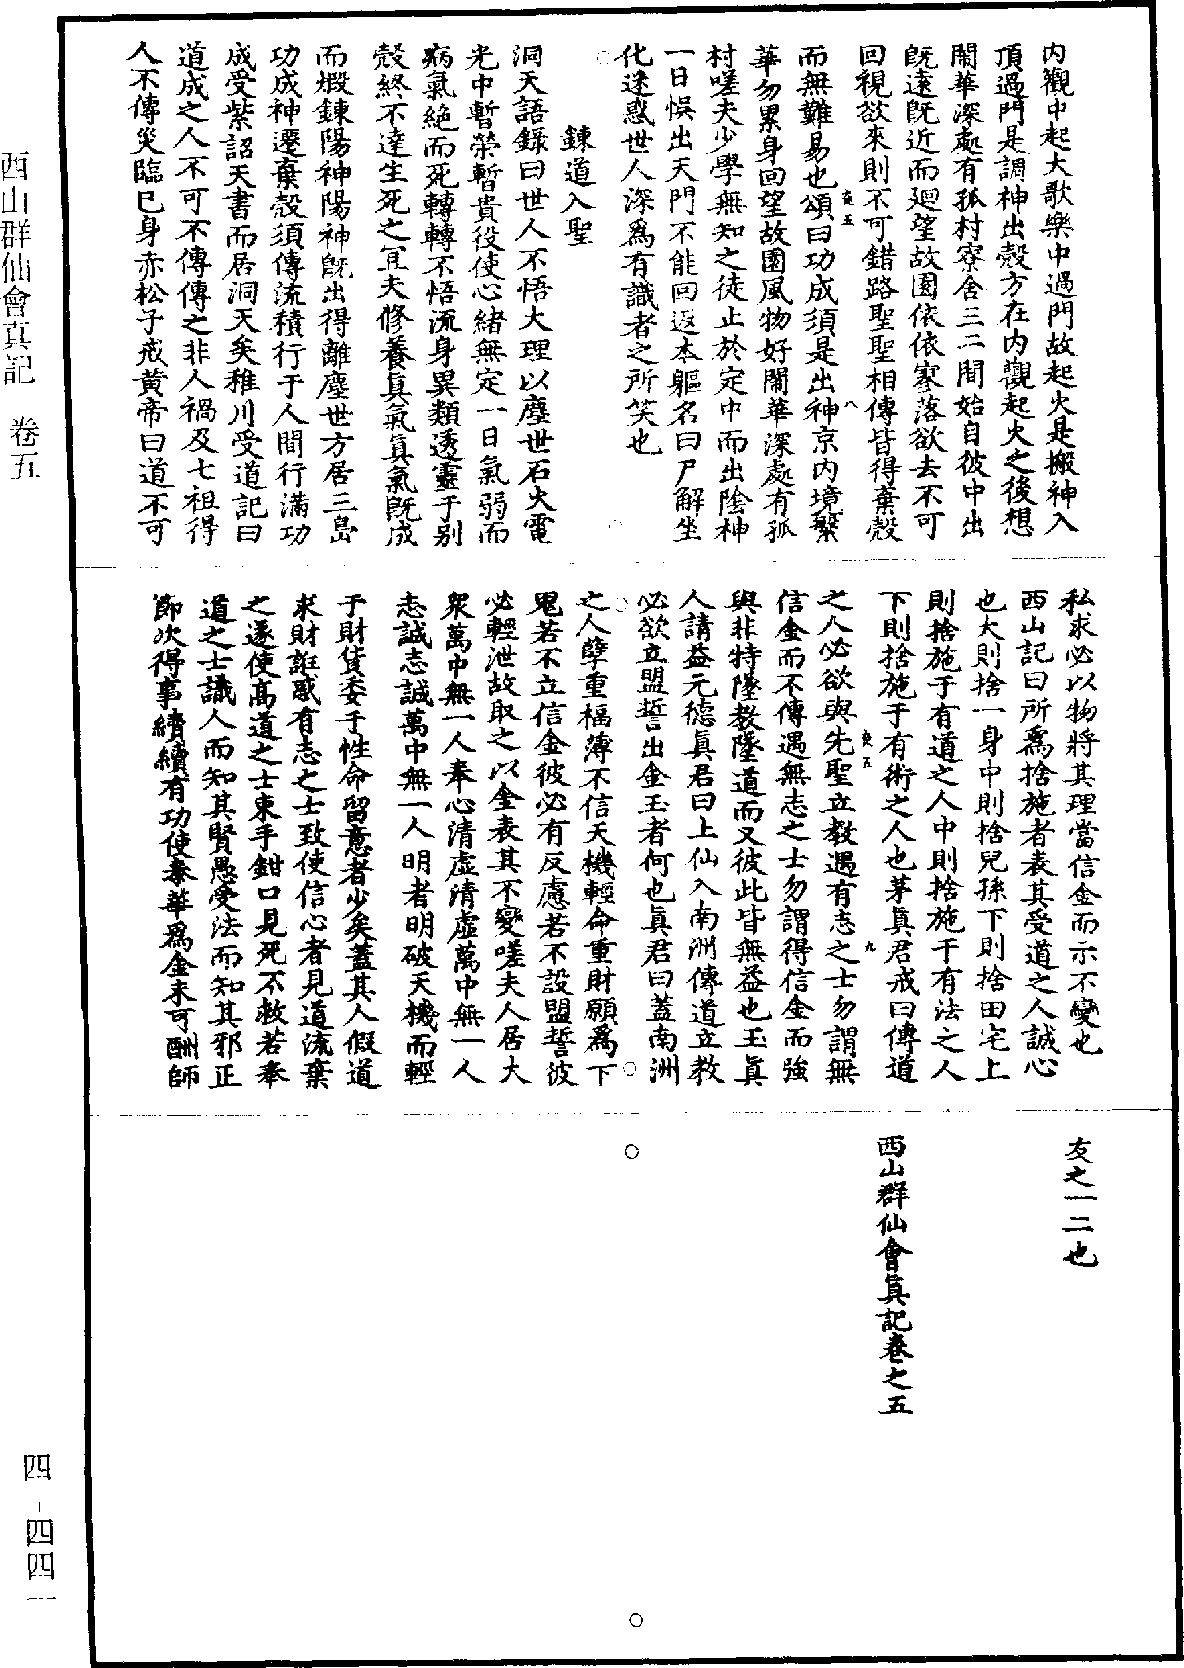 内觀中起大歌樂中過門故起火是搬神入
頂過門是調神出殼方在内觀起火之後想
閙華深處有孤村寮舍三二間始自彼中出
旣遠旣近而廻望故園依依寨落欲去不可
回視欲來則不可錯路聖聖相傳皆得棄殼
而無難易也頌曰功成須是出神京内境繁
華勿累身回望故園風物好閙華深處有孤
村嗟夫少學無知之徒止於定中而出陰神
一日悞出天門不能回返本軀名曰尸解坐
化迷惑世人深爲有識者之所笑也
鍊道入聖
洞天語録曰世人不悟大理以塵世石火電
光中暫榮暫貴役使心緒無定一日氣弱而
病氣絶而死轉轉不悟流身異類透靈于别
殼終不達生死之宜夫修養眞氣眞氣旣成
而煆鍊陽神陽神旣出得離塵世方居三島
功成神遷棄殼須傳流積行于人間行滿功
成受紫詔天書而居洞天矣稚川受道記曰
道成之人不可不傳傳之非人禍及七祖得
人不傳災臨已身赤松子戒黄帝曰道不可
私求必以物將其理當信金而示不變也
西山記曰所爲捨施者表其受道之人誠心
也大則捨一身中則捨兒孫下則捨田宅上
則捨施于有道之人中則捨施于有法之人
下則捨施于有術之人也茅眞君戒曰傳道
之人必欲與先聖立教遇有志之士勿謂無
信金而不傳遇無志之士勿謂得信金而強
與非特墜教墜道而又彼此皆無益也玉眞
人請益元德眞君曰上仙入南洲傳道立教
必欲立盟誓出金玉者何也眞君曰蓋南洲
之人孽重福薄不信天機輕命重財願爲下
鬼若不立信金彼必有反慮若不設盟誓彼
必輕泄故取之以金表其不變嗟夫人居大
衆萬中無一人奉心清虛清虛萬中無一人
志誠志誠萬中無一人明者明破天機而輕
于財貨委于性命留意者少矣蓋其人假道
求財誑惑有志之士致使信心者見道流棄
之遂使高道之士束手鉗口見死不救若奉
道之士識人而知其賢愚受法而知其邪正
節次得事續續有功使泰華爲金未可酬師
友之一二也
西山群仙會眞記卷之五
西山群仙會真記 卷五
四-四四一